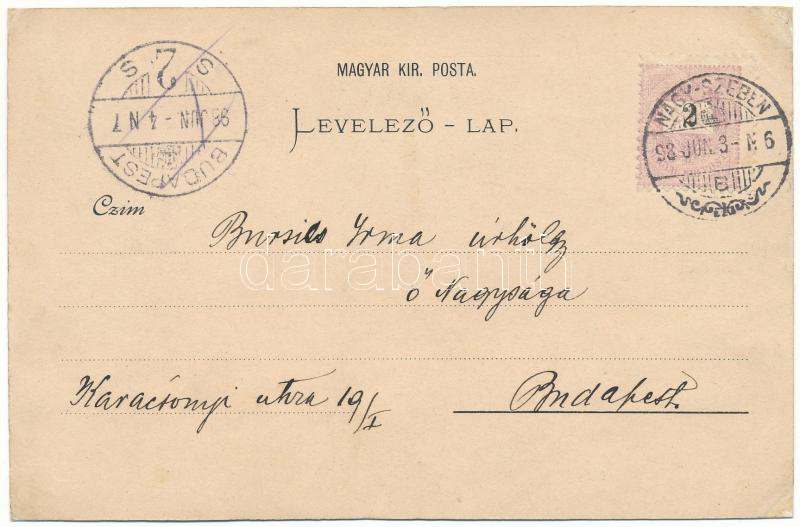 MAGYAR KIR. POSTA.
LEVELEZŐ - LAP.
NAGY-SZEBEN
2
98 JUN. 3 - N 6
B
S 2 S
98 JUN. - 4 N 7
BUDAPEST
Czim
Irma úrhölgy
ő Nagysága
Karacsonyi utcza 19/I
Budapest.
darabanth